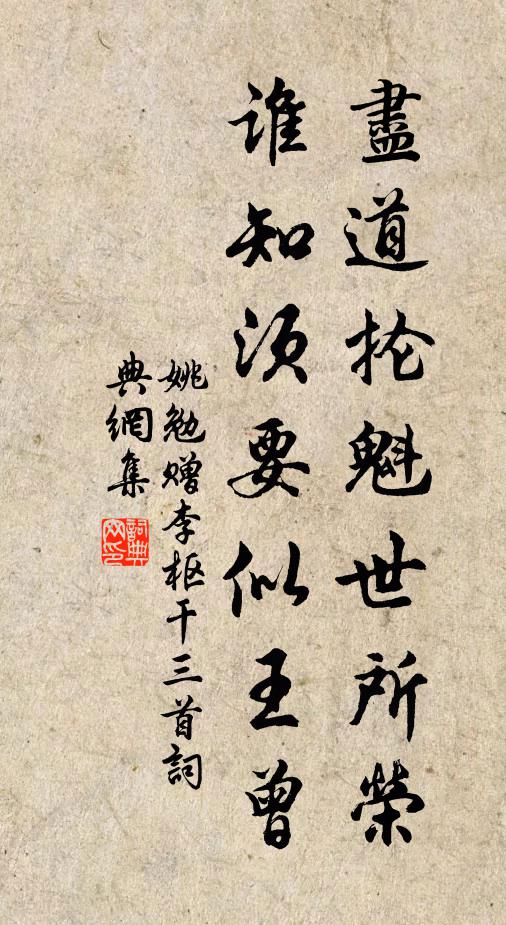 盡道掄魁世所榮
誰知須要似王曾
姚勉贈李枢干三首詞
典網集
詞典網印